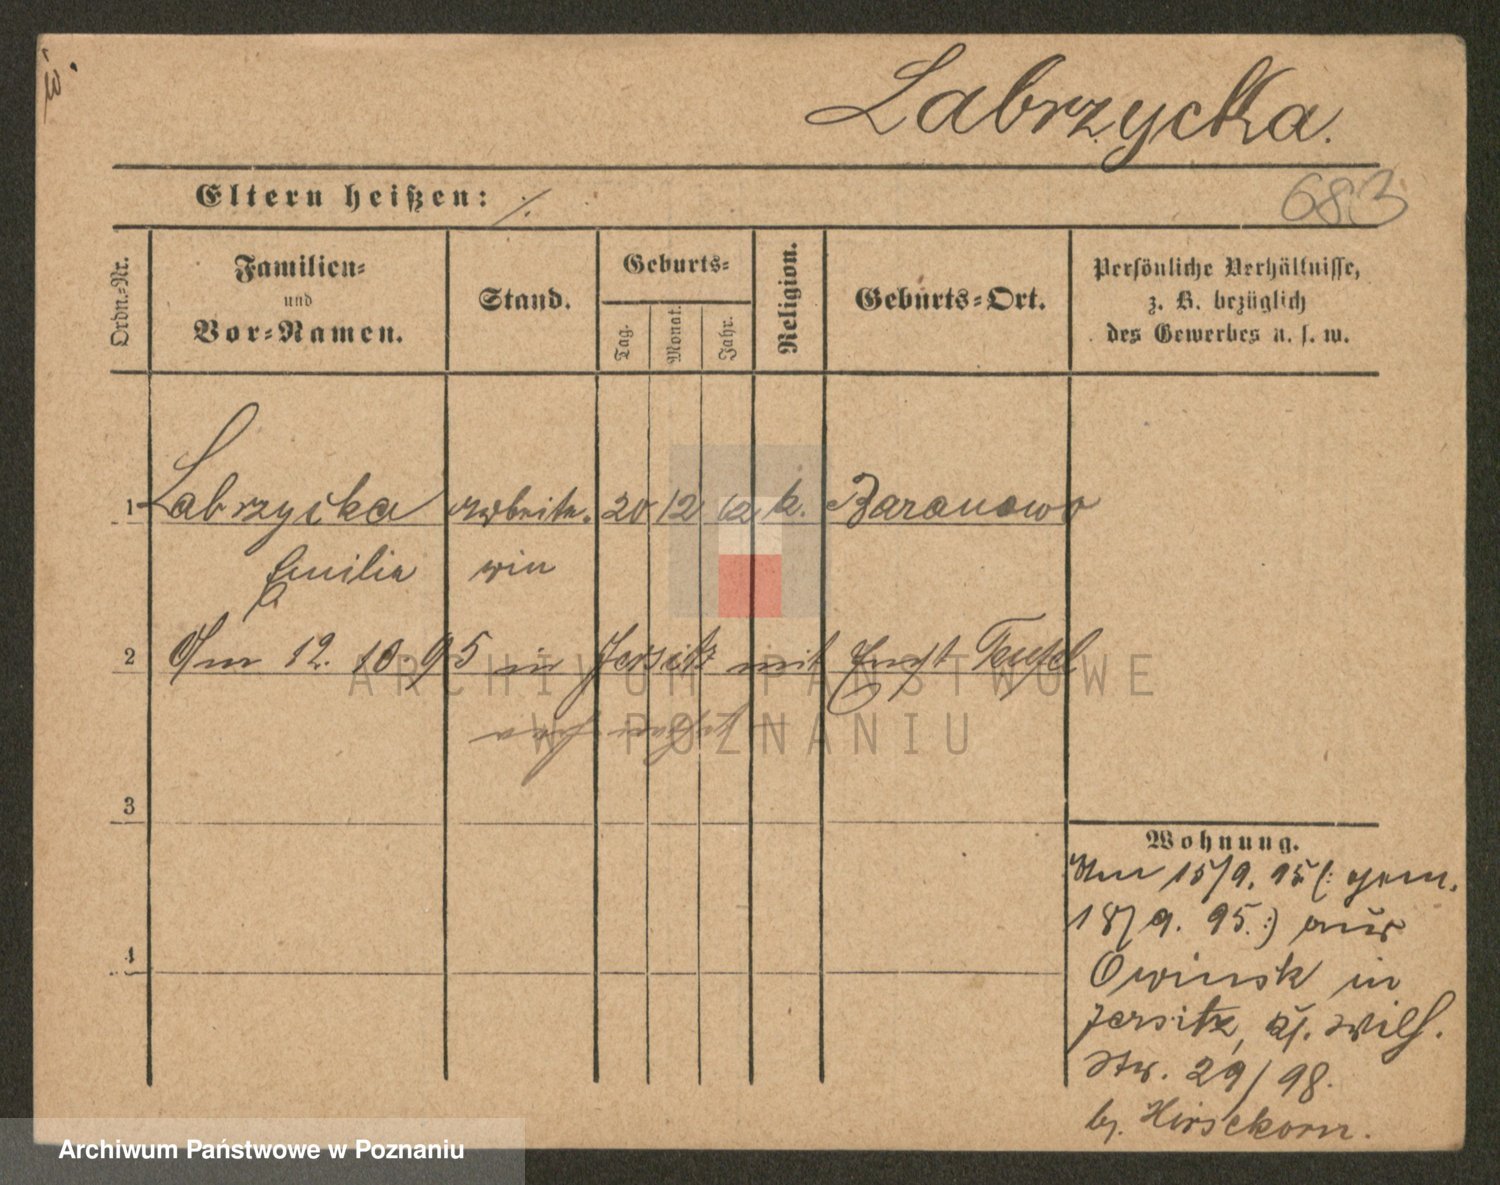 Labrzycka.
Eltern heißen: ./.
683
Ordn.-Nr.
Familien-
und
Vor-Namen.
Stand.
Geburts-
Tag.
Monat.
Jahr.
Religion.
Geburts-Ort.
Persönliche Verhältnisse,
z. B. bezüglich
des Gewerbes u. s. w.
1 Labrzycka Arbeite- 20 12 62 k. Baranowo
Emilie rin
2 Am 12. 10. 95 in Jersitz mit Ernst Teufel
3
4
Wohnung.
Am 15/9. 95 (: gem.
18/9. 95 :) aus
Owinsk in
Jersitz, Wilh.
Str. 29/98.
b. Hirsekorn.
ARCHIWUM PAŃSTWOWE
W POZNANIU
Archiwum Państwowe w Poznaniu